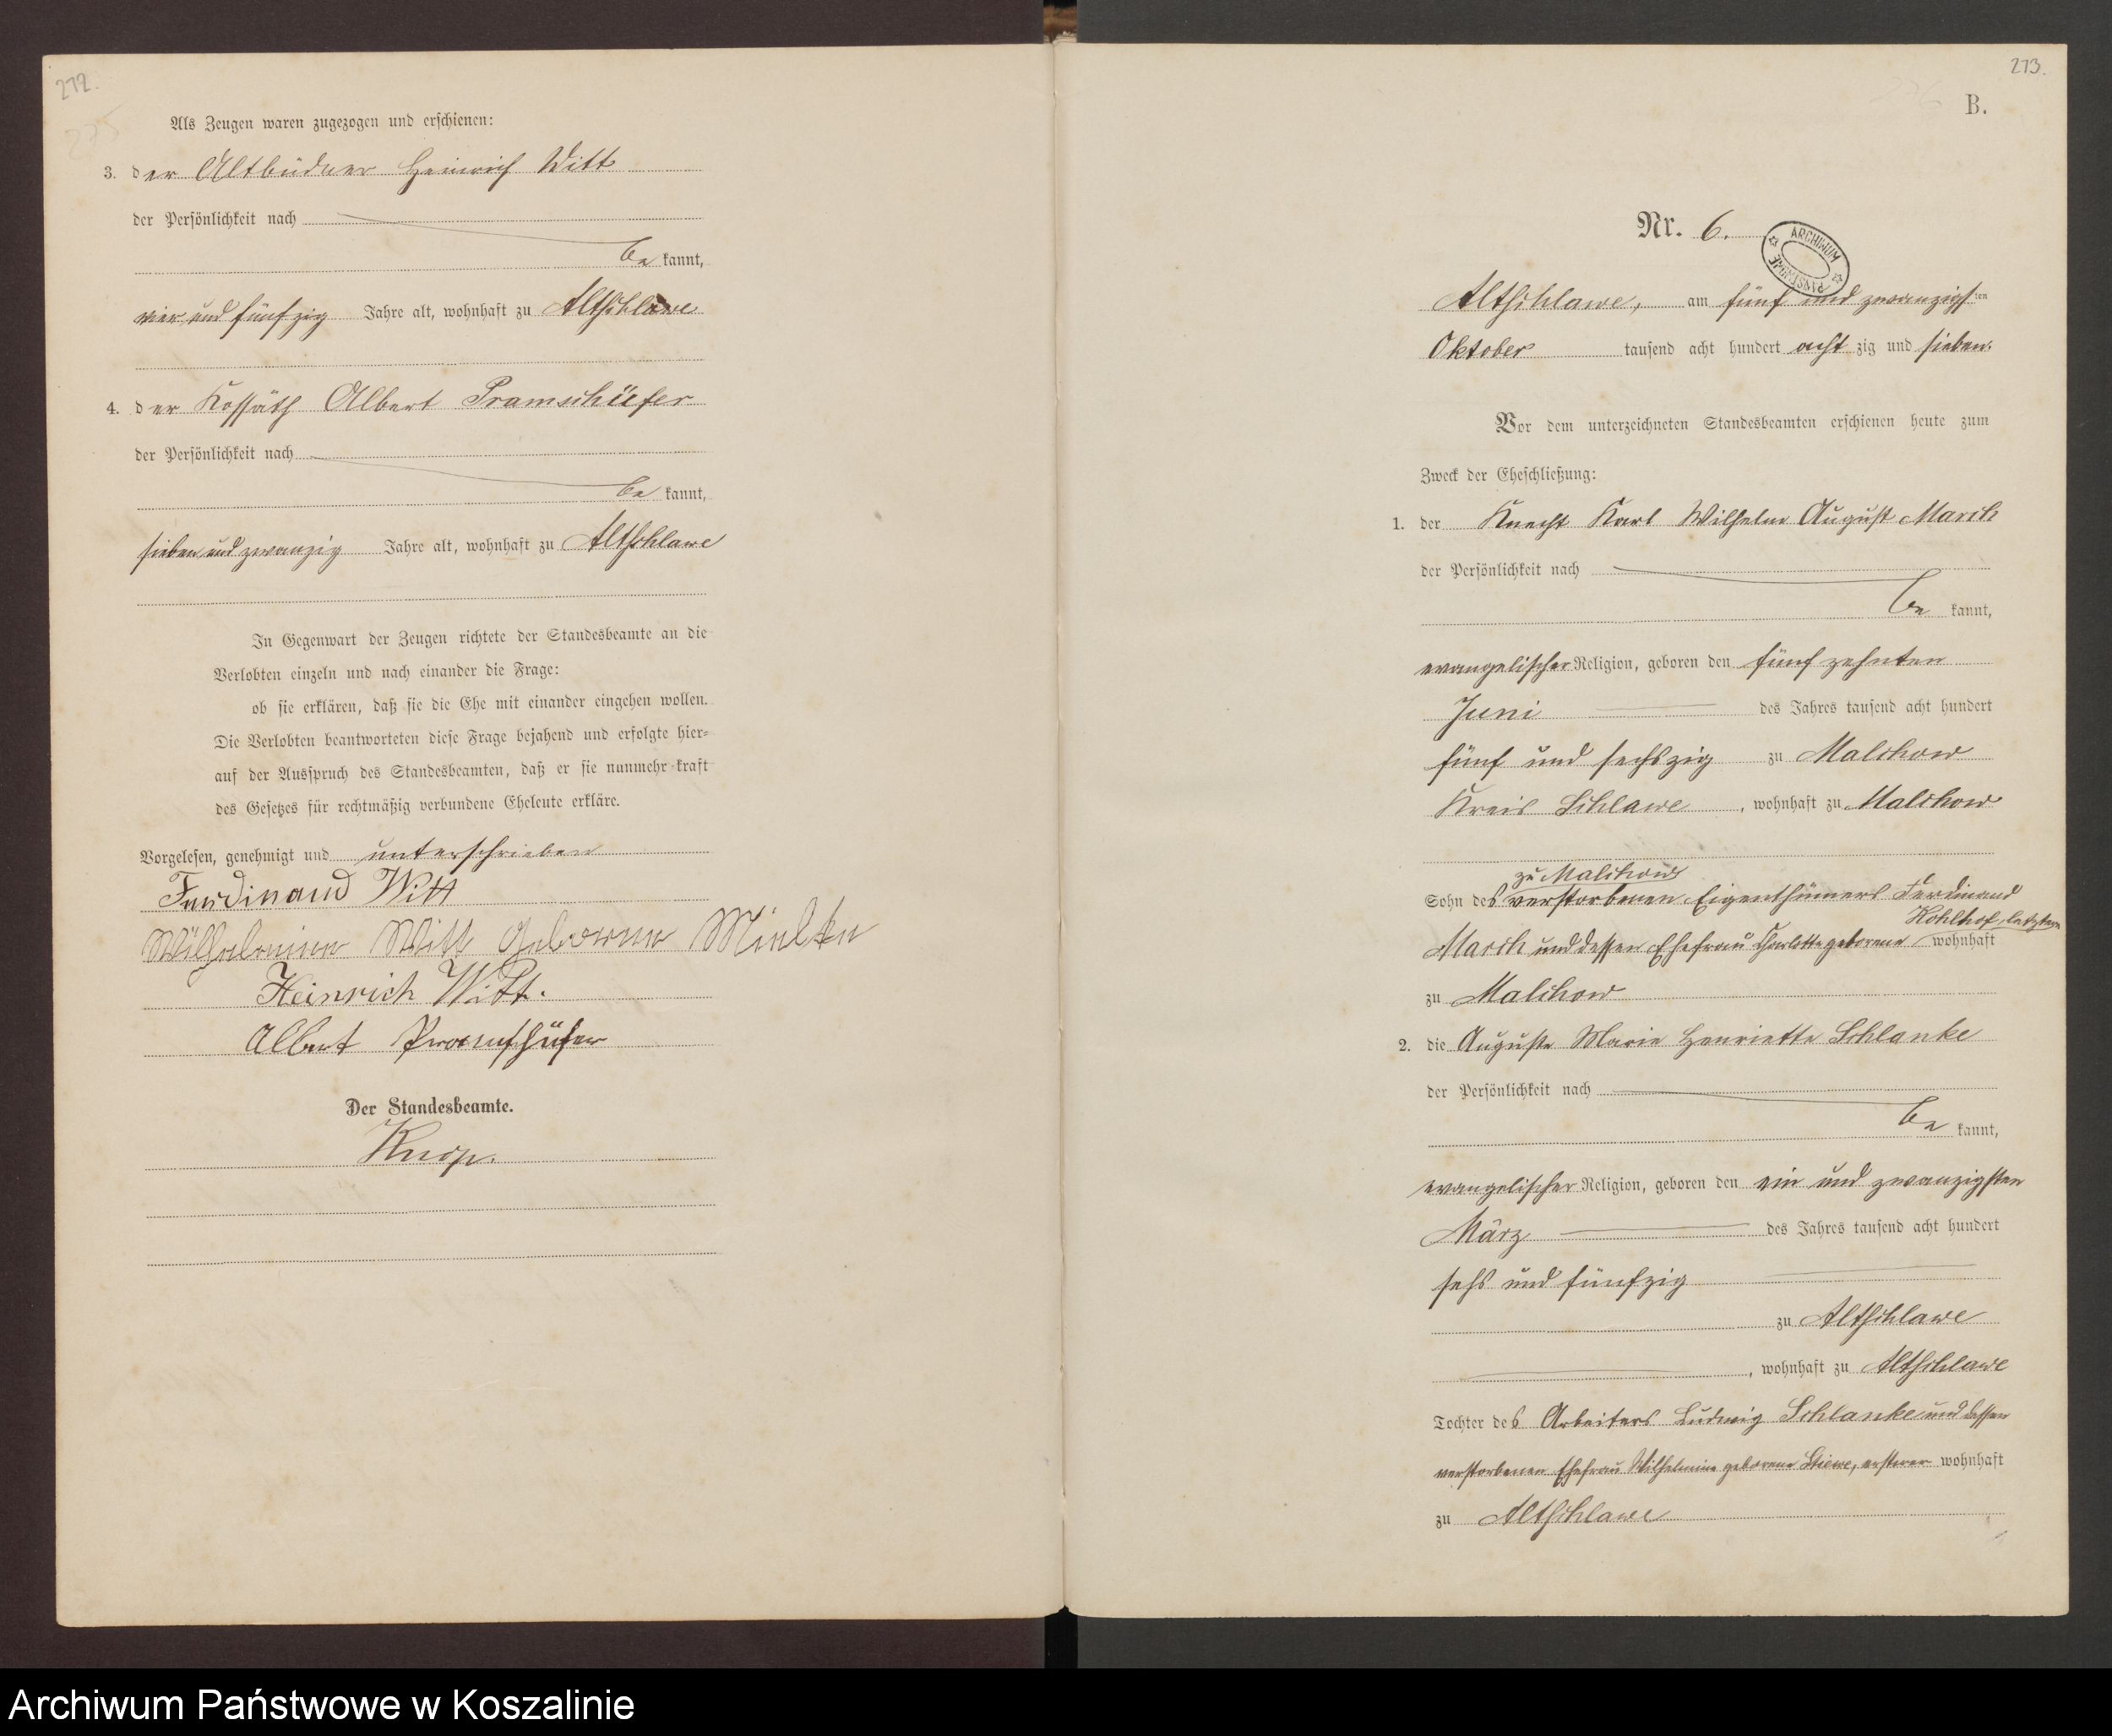 272.
Als Zeugen waren zugezogen und erschienen:
3. der Altbüdner Heinrich Witt
der Persönlichkeit nach
be kannt,
vier und fünfzig Jahre alt, wohnhaft zu Altschlawe
4. der Kossäth Albert Pramschüfer
der Persönlichkeit nach
be kannt,
sieben und zwanzig Jahre alt, wohnhaft zu Altschlawe
In Gegenwart der Zeugen richtete der Standesbeamte an die
Verlobten einzeln und nach einander die Frage:
ob sie erklären, daß sie die Ehe mit einander eingehen wollen.
Die Verlobten beantworteten diese Frage bejahend und erfolgte hier-
auf der Ausspruch des Standesbeamten, daß er sie nunmehr kraft
des Gesetzes für rechtmäßig verbundene Eheleute erkläre.
Vorgelesen, genehmigt und unterschrieben
Ferdinand Witt
Wilhelmine Witt geborene Mielke
Heinrich Witt.
Albert Pramschüfer
Der Standesbeamte.
Knop.
273.
B.
Nr. 6.
ARCHIWUM PAŃSTWOWE
Altschlawe, am fünf und zwanzigsten
Oktober tausend acht hundert acht zig und sieben.
Vor dem unterzeichneten Standesbeamten erschienen heute zum
Zweck der Eheschließung:
1. der Knecht Karl Wilhelm August March
der Persönlichkeit nach
be kannt,
evangelischer Religion, geboren den fünf zehnten
Juni des Jahres tausend acht hundert
fünf und sechszig zu Malchow
Kreis Schlawe, wohnhaft zu Malchow
zu Malchow
Sohn des verstorbenen Eigenthümers Ferdinand
Kohlhof, letztere
March und dessen Ehefrau Charlotte geborene wohnhaft
zu Malchow
2. die Auguste Marie Henriette Schlanke
der Persönlichkeit nach
be kannt,
evangelischer Religion, geboren den ein und zwanzigsten
März des Jahres tausend acht hundert
sechs und fünfzig
zu Altschlawe
, wohnhaft zu Altschlawe
Tochter des Arbeiters Ludwig Schlanke und dessen
verstorbenen Ehefrau Wilhelmine geborene Stiewe, ersterer wohnhaft
zu Altschlawe
Archiwum Państwowe w Koszalinie